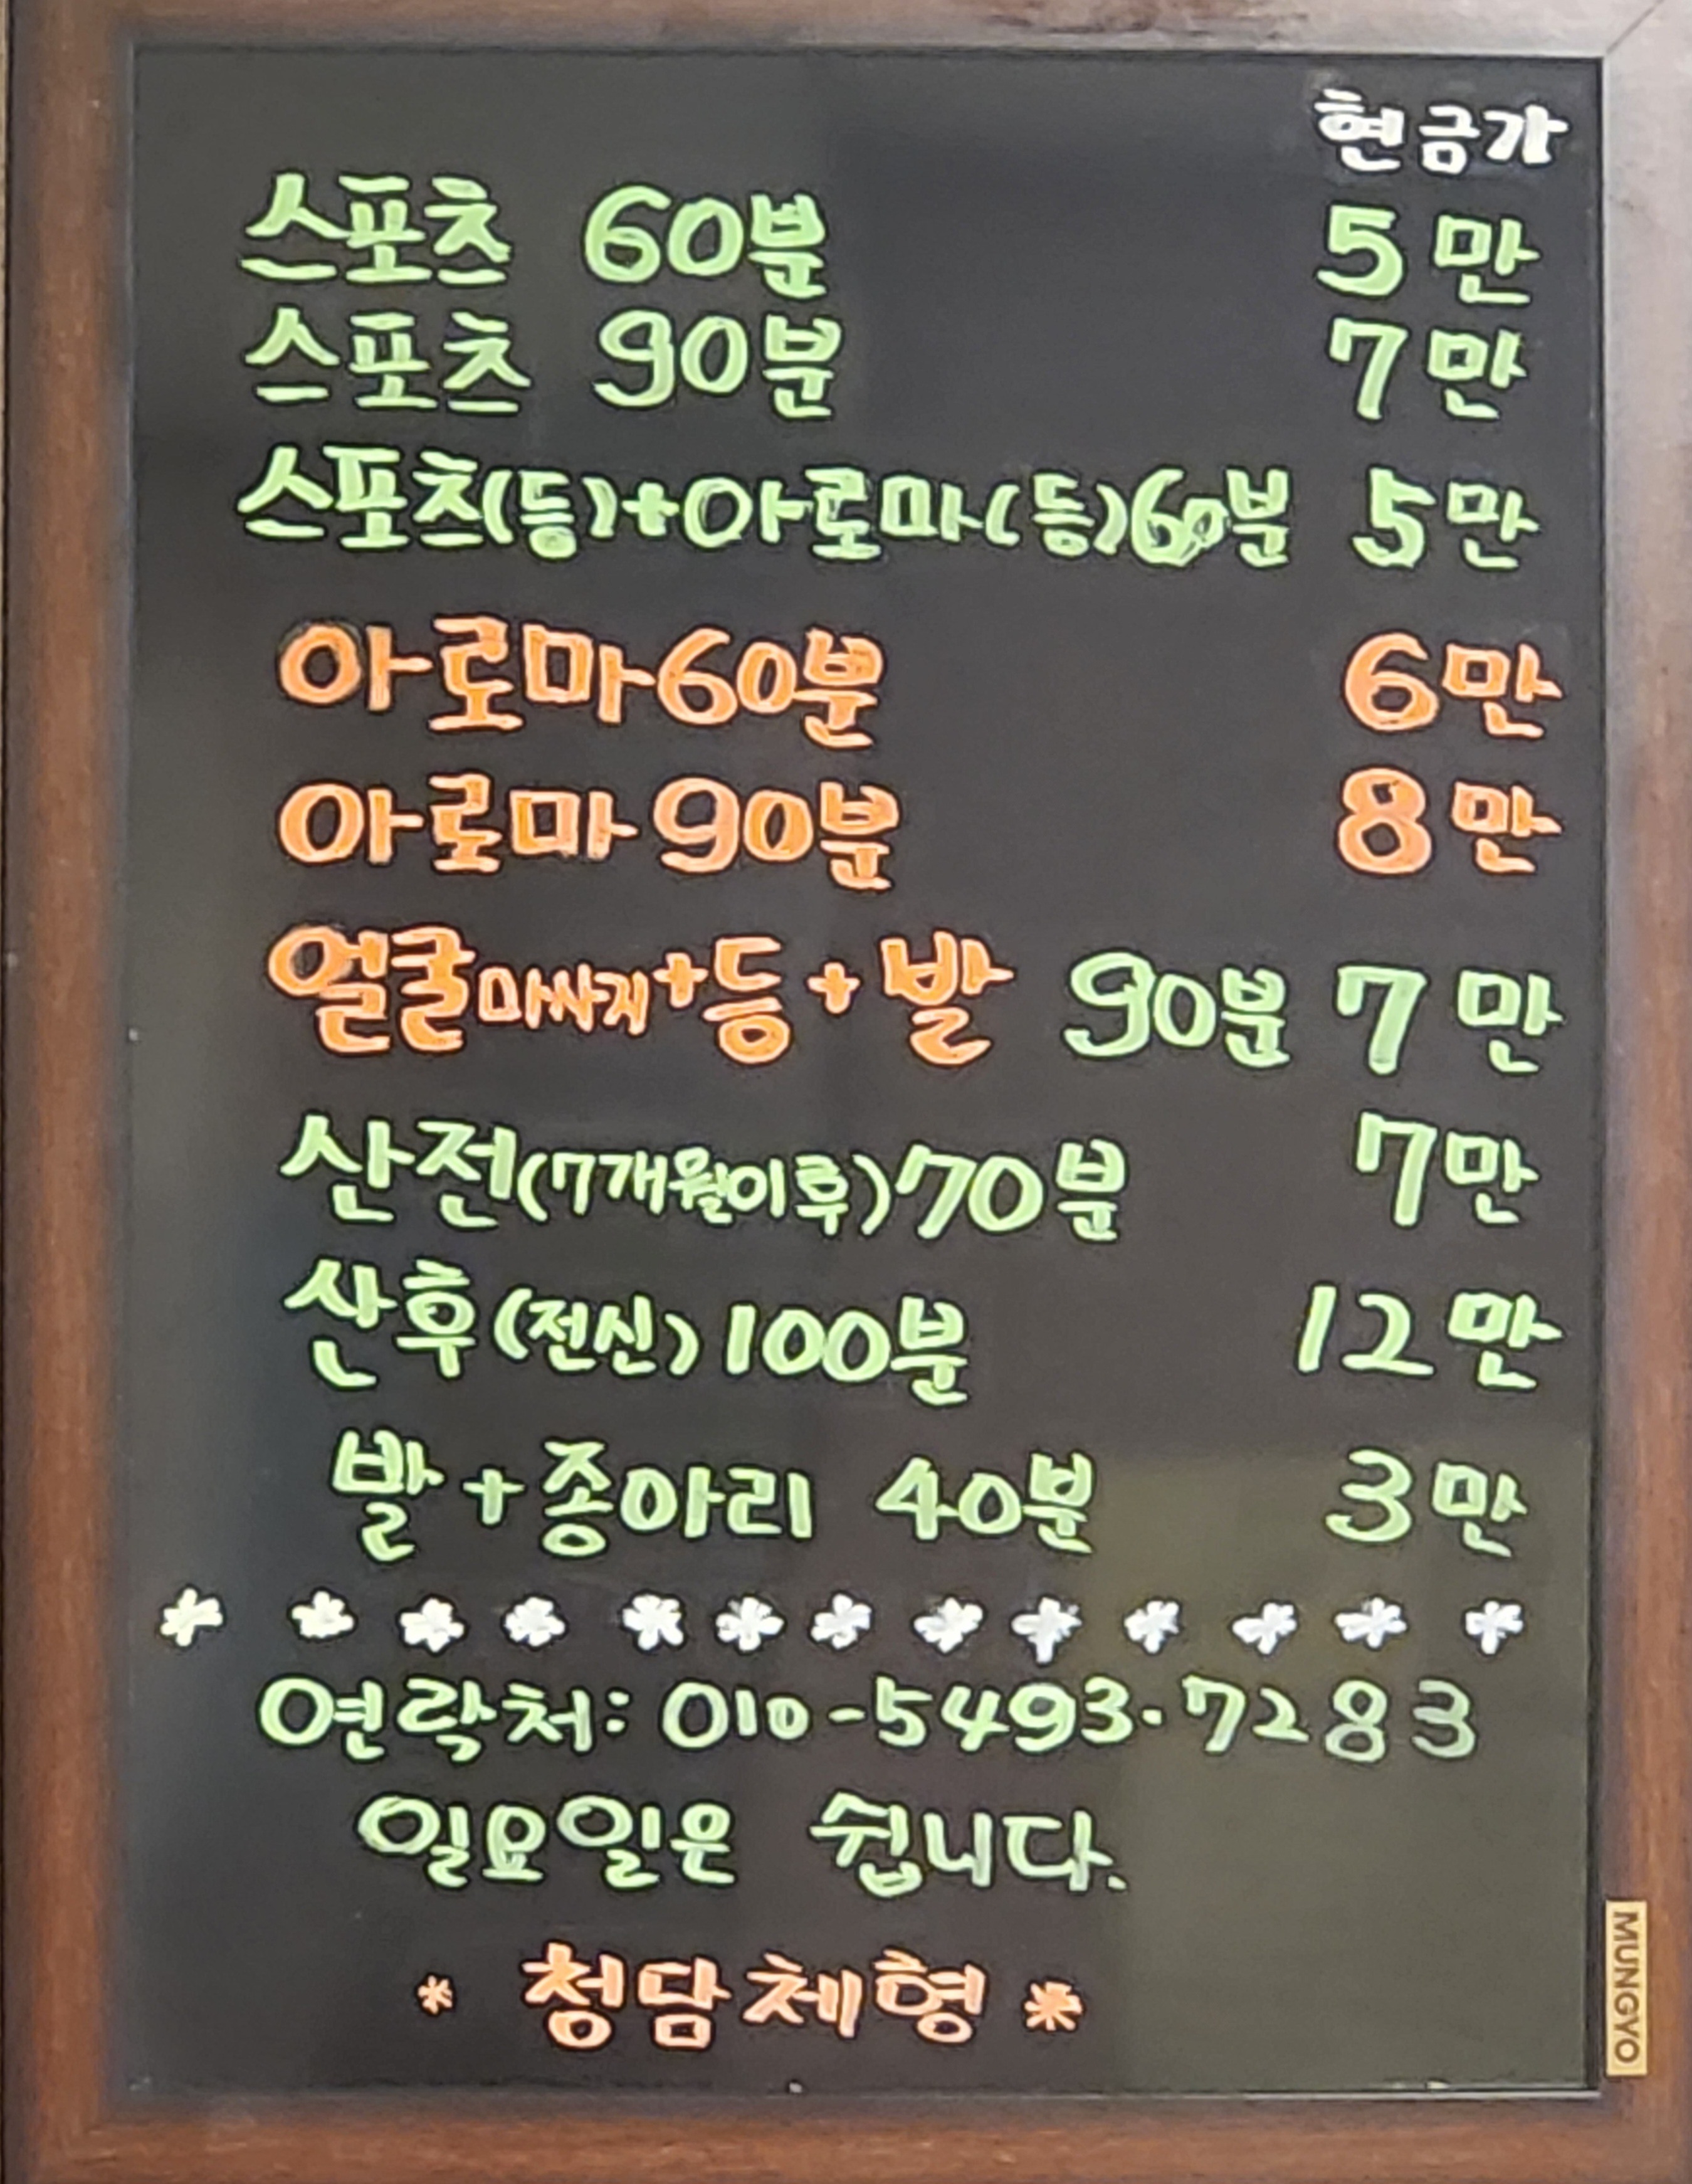 현금가
스포츠 60분 5만
스포츠 90분 7만
스포츠(등)+아로마(등)60분 5만
아로마60분 6만
아로마 90분 8만
얼굴마싸지+등+발 90분 7만
산전(7개월이후)70분 7만
산후(전신)100분 12만
발+종아리 40분 3만
* * * * * * * * * * * * *
연락처: 010-5493-7283
일요일은 쉽니다.
* 청담체형 *
MUNGYO